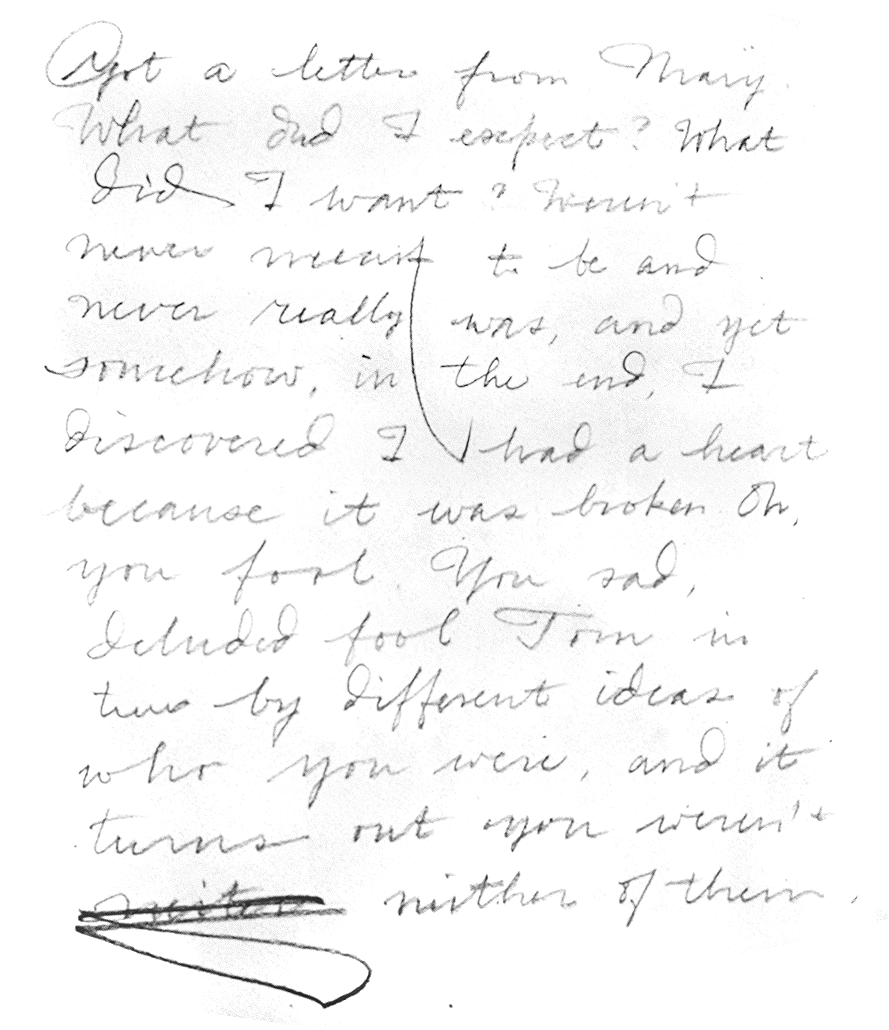 Got a letter from Mary.
What did I expect? What
did I want? Weren't
never meant to be and
never really was, and yet
somehow, in the end, I
discovered I had a heart
because it was broken Oh,
you fool. You sad,
deluded fool Torn in
two by different ideas of
who you were, and it
turns out you weren't
neither of them.